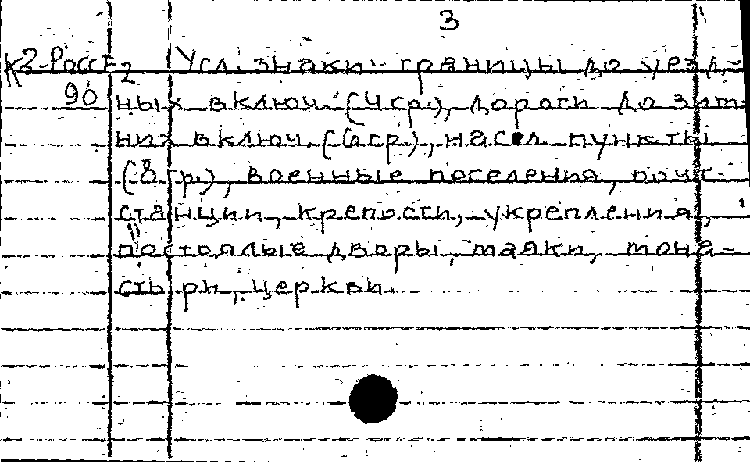 3
К2-РоссЕ2 Усл. знаки:- границы до уезд-
90 ных включ. (4гр.), дороги до зим-
них включ. (6гр.), насел. пункты
(8гр.), военные поселения, почт.
станции, крепости, укрепления,
постоялые дворы, маяки, мона-
стыри, церкви.